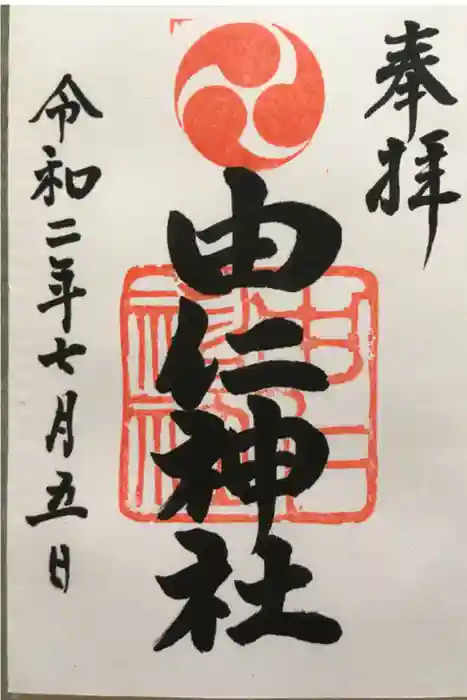 奉拝
由仁神社
令和二年七月五日